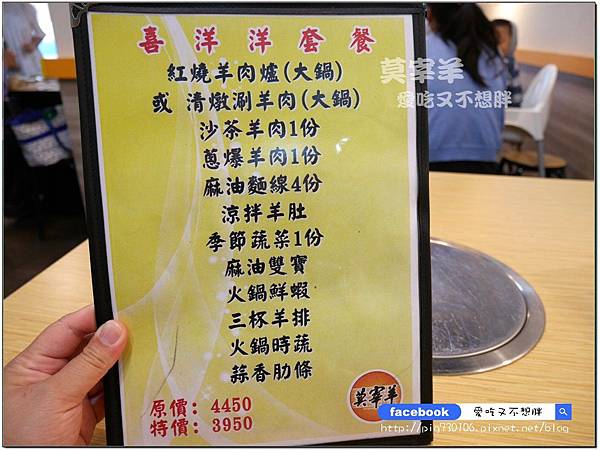 喜洋洋套餐
紅燒羊肉爐(大鍋)
或 清燉涮羊肉(大鍋)
沙茶羊肉1份
蔥爆羊肉1份
麻油麵線4份
涼拌羊肚
季節蔬菜1份
麻油雙寶
火鍋鮮蝦
三杯羊排
火鍋時蔬
蒜香肋條
原價: 4450
特價: 3950
莫宰羊
莫宰羊
愛吃又不想胖
facebook 愛吃又不想胖
http://pin730106.pixnet.net/blog